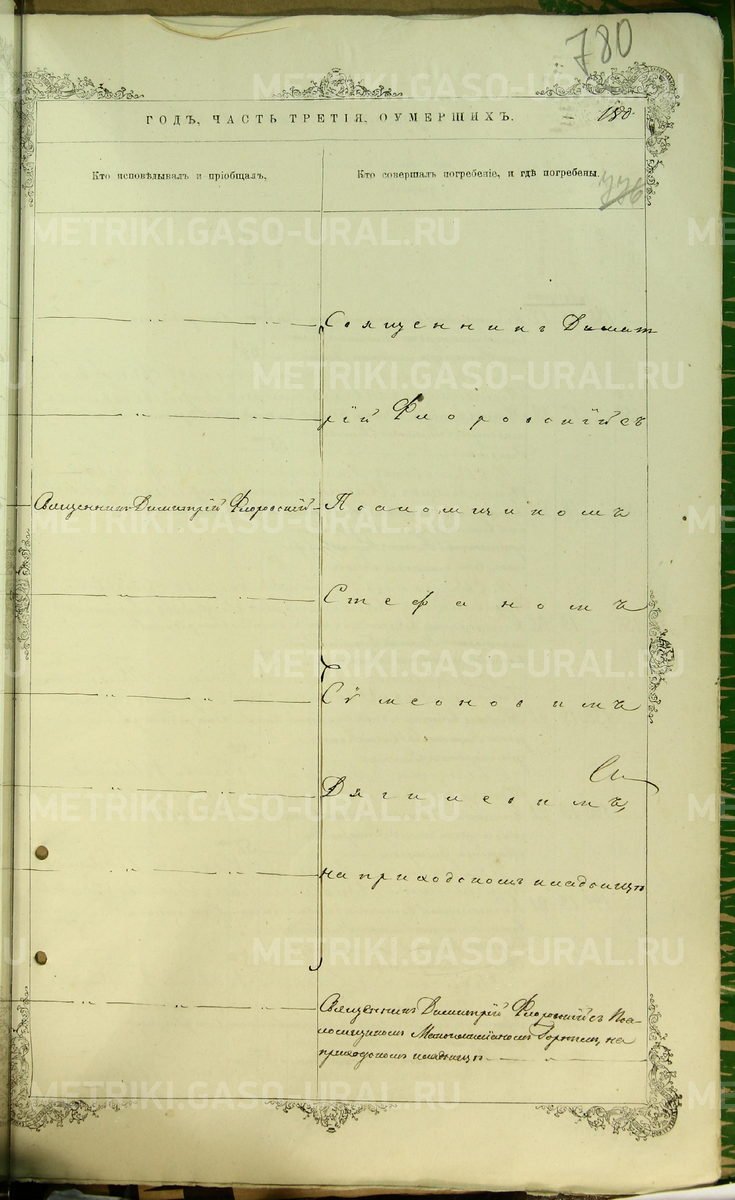 780
ГОДЪ, ЧАСТЬ ТРЕТІЯ, О УМЕРШИХЪ.
180.
Кто исповѣдывалъ и пріобщалъ.
Кто совершалъ погребеніе, и гдѣ погребены.
776
Священникъ Димит
рій Флоровскій съ
Священникъ Димитрій Флоровскій
Псаломщикомъ
Стефаномъ
Сѵмеоновимъ
Дягилевимъ,
на приходскомъ кладбищѣ
Священникъ Димитрій Флоровскій съ Пса-
ломщикомъ
на
приходскомъ кладбищѣ
METRIKI.GASO-URAL.RU